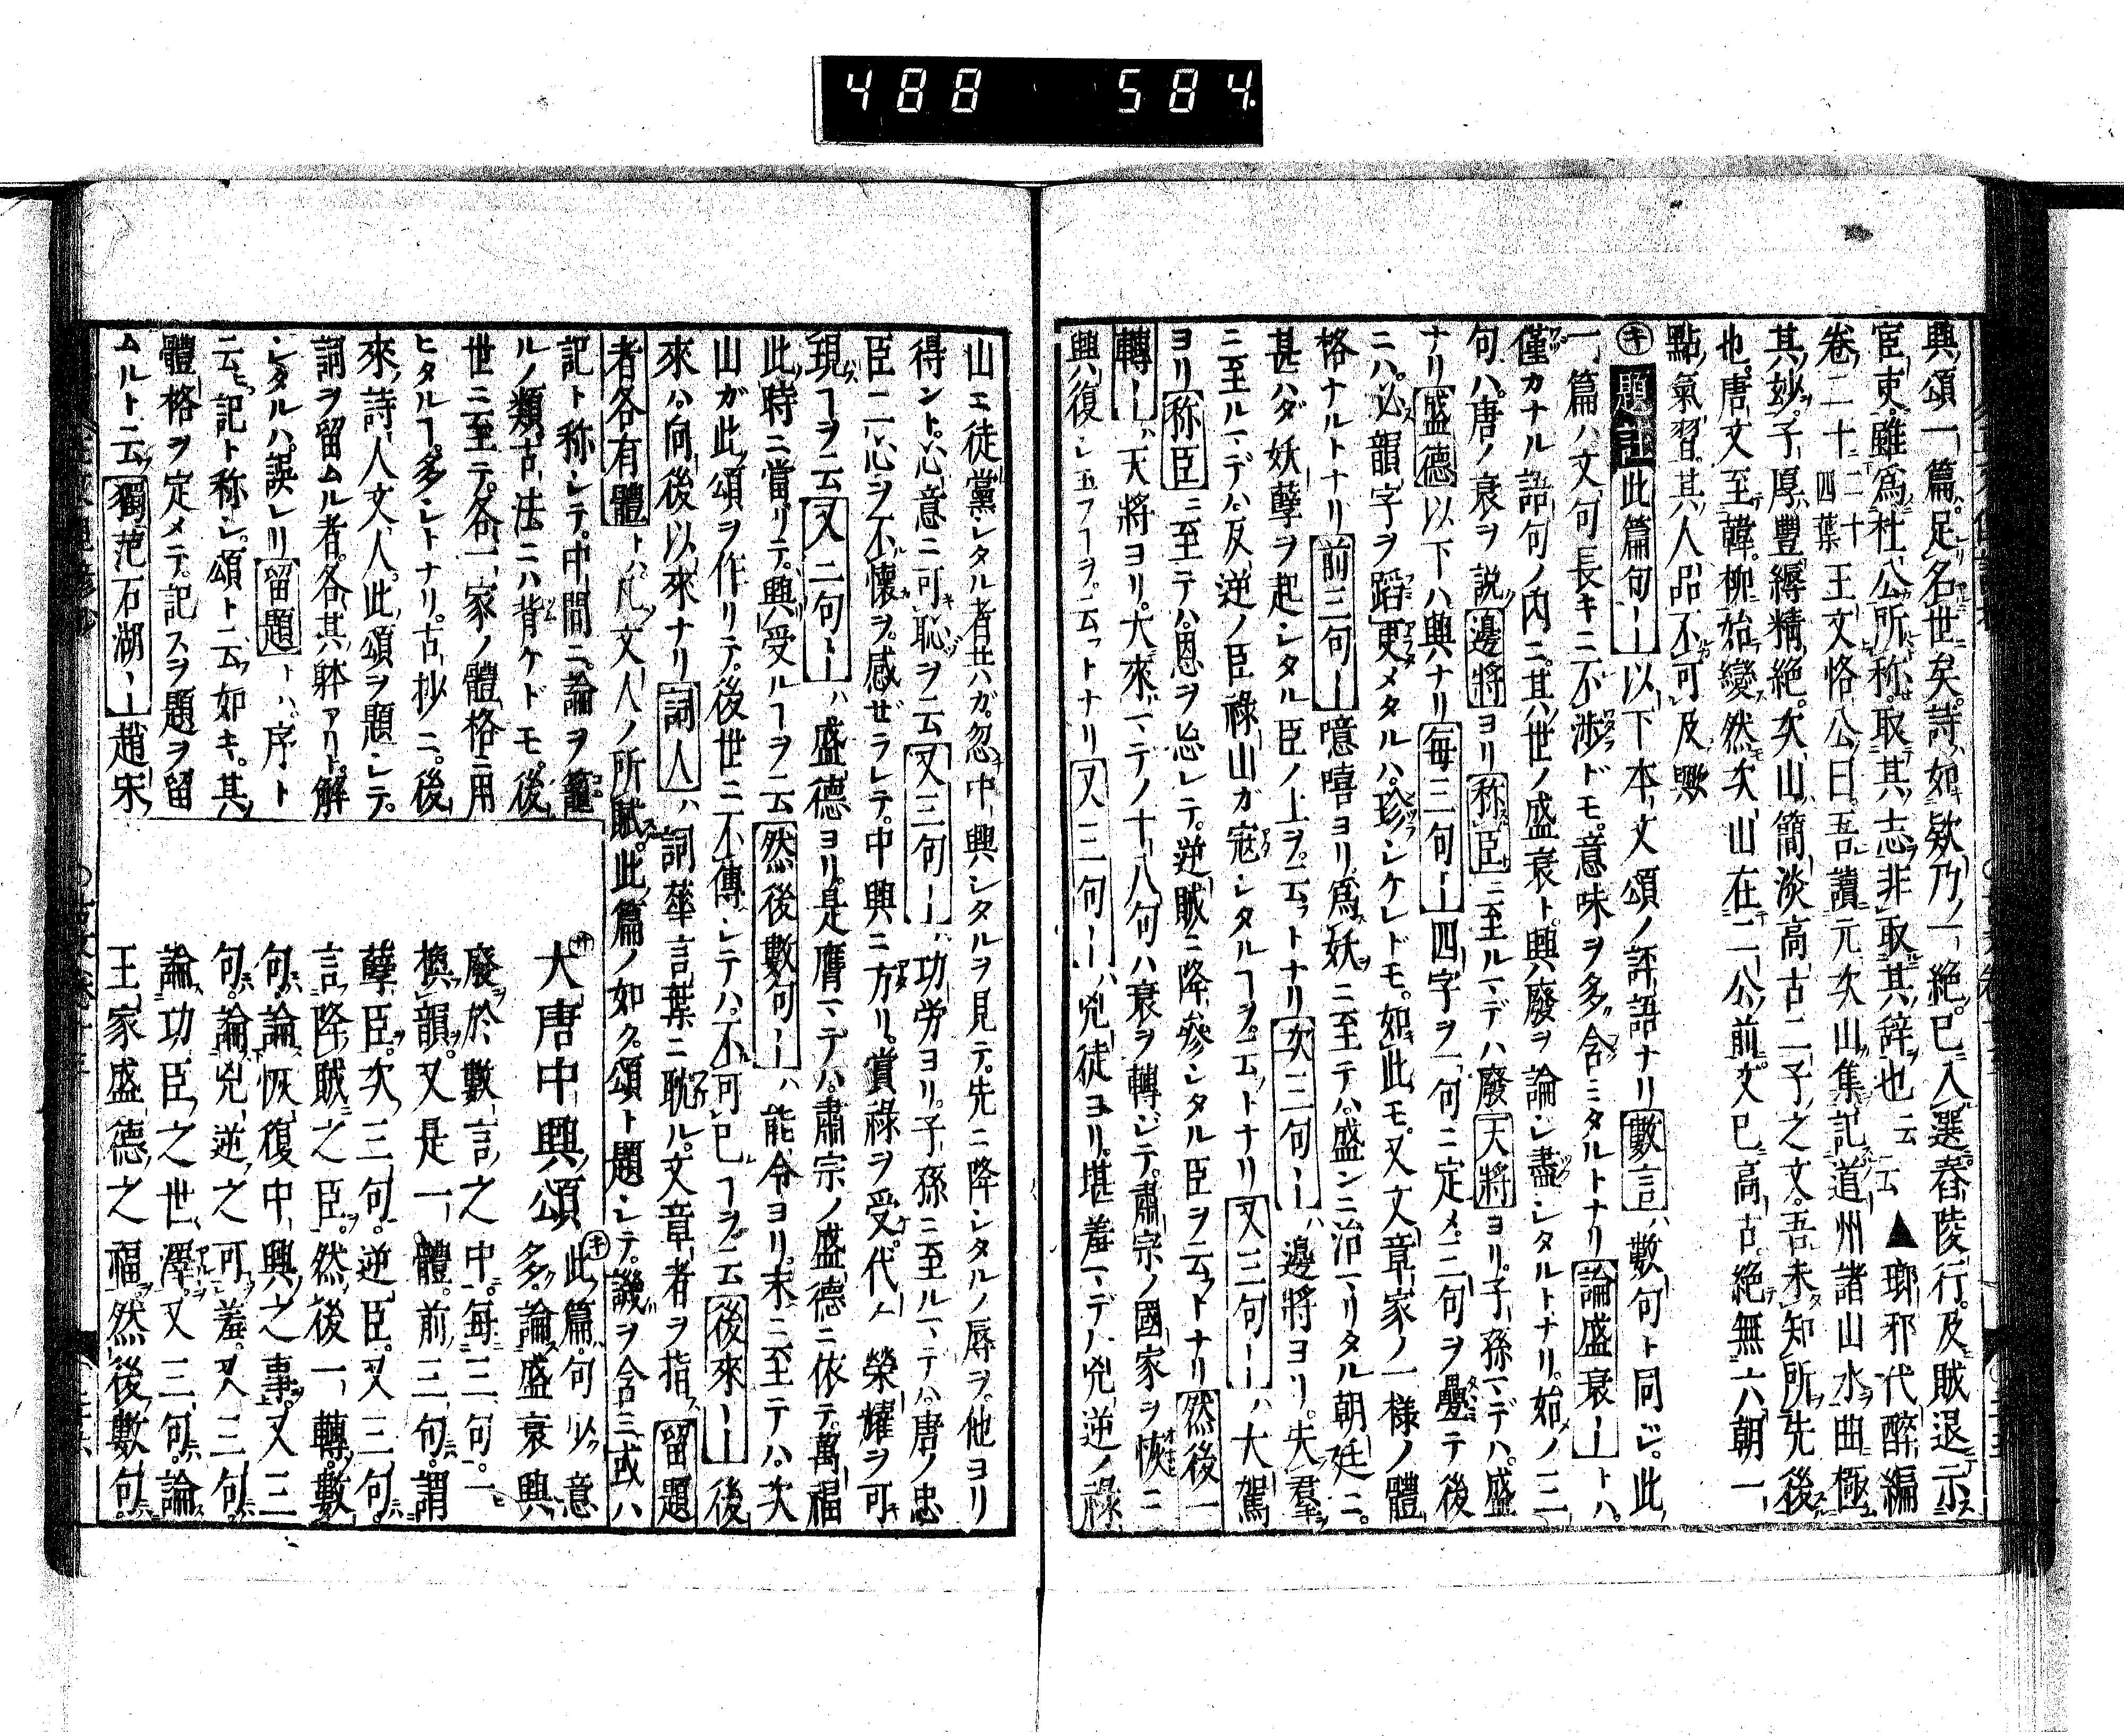 488 584
興頌一篇足名世矣詩如欸乃一絶已入選舂陵行及賊退示
宦吏雖爲杜公所称取其志非取其辞也云云▲瑯邪代醉編
卷二十二十四葉王文恪公曰吾讀元次山集記道州諸山水曲極
其妙子厚豐縟精絶次山簡淡高古二子之文吾未知所先後
也唐文至韓柳始變然次山在二公前文已高古絶無六朝一
點氣習其人品不可及歟
㋖題言此篇句ーー以下本文頌ノ評語ナリ數言ハ數句ト同ジ此
一篇ハ文句長キニ不渉ドモ意味ヲ多含ミタルトナリ論盛衰ーートハ
僅カナル語句ノ内ニ其世ノ盛衰ト興廢ヲ論ジ盡シタルトナリ始ノ三
句ハ唐ノ衰ヲ説邊將ヨリ称臣ニ至ルマデハ廢天將ヨリ子孫マデハ盛
ナリ盛德以下ハ興ナリ每三句ーー四字ヲ一句ニ定メ三句ヲ疊テ後
ニハ必韻字ヲ蹈更メタルハ珍シケレドモ如此モ又文章家ノ一樣ノ體
格ナルトナリ前三句ーー噫嘻ヨリ爲妖ニ至テハ盛ンニ治マリタル朝廷ニ
甚ハダ妖孽ヲ起シタル臣ノ上ヲ云フトナリ次三句ーーハ邊將ヨリ失羣
ニ至ルマデハ反逆ノ臣祿山ガ寇シタルヿヲ云トナリ又三句ーーハ大駕
ヨリ称臣ニ至テハ恩ヲ忘レテ逆賊ニ降參シタル臣ヲ云フトナリ然後一
轉ーーハ天將ヨリ大來マデノ十八句ハ衰ヲ轉ジテ肅宗ノ國家ヲ恢ニ
興復シ玉フヿヲ云フトナリ又三句ーーハ兇徒ヨリ堪羞マデハ兇逆ノ祿
山エ徒黨シタル者共ハガ忽中興シタルヲ見テ先ニ降シタルノ辱ヲ他ヨリ
得ント心意ニ可恥ヲ云又三句ーーハ功労ヨリ子孫ニ至ルマテハ唐ノ忠
臣二心ヲ不懐ヲ感ぜラレテ中興ニ方リ賞祿ヲ受代々榮耀ヲ可
現ヿヲ云又二句ーーハ盛德ヨリ是膺マデハ肅宗ノ盛德ニ依テ萬福
此時ニ當リテ興受ルヿヲ云然後數句ーーハ能令ヨリ末ニ至テハ次
山ガ此頌ヲ作リテ後世ニ不傳シテハ不可已ヿヲ云後來ーー後
來ハ向後以來ナリ詞人ハ詞華言葉ニ耽ル文章者ヲ指留題
者各有體トハ凡文人ノ所賦此篇ノ如ク頌ト題シテ譏ヲ含ミ或ハ
記ト称シテ中間ニ論ヲ籠
ルノ類古法ニハ背ケドモ後
世ニ至テ各一家ノ體格ニ用
ヒタルヿ多シトナリ古抄ニ後
來詩人文人此頌ヲ題シテ
詞ヲ留ムル者各其躰アリト解
シタルハ誤レリ留題トハ序ト
云ヒ記ト称シ頌ト云フ如キ其
體格ヲ定メテ記スヲ題ヲ留
ムルト云獨范石湖ーー趙宋
大唐中興頌㋖此篇句以意多論盛衰興
廢於數言之中每三句一
換韻又是一體前三句謂
孽臣次三句逆臣又三句
言降賊之臣然後一轉數
句論恢復中興之事又三
句論兇逆之可羞又三句
論功臣之世澤又三句論
王家盛德之福然後數句